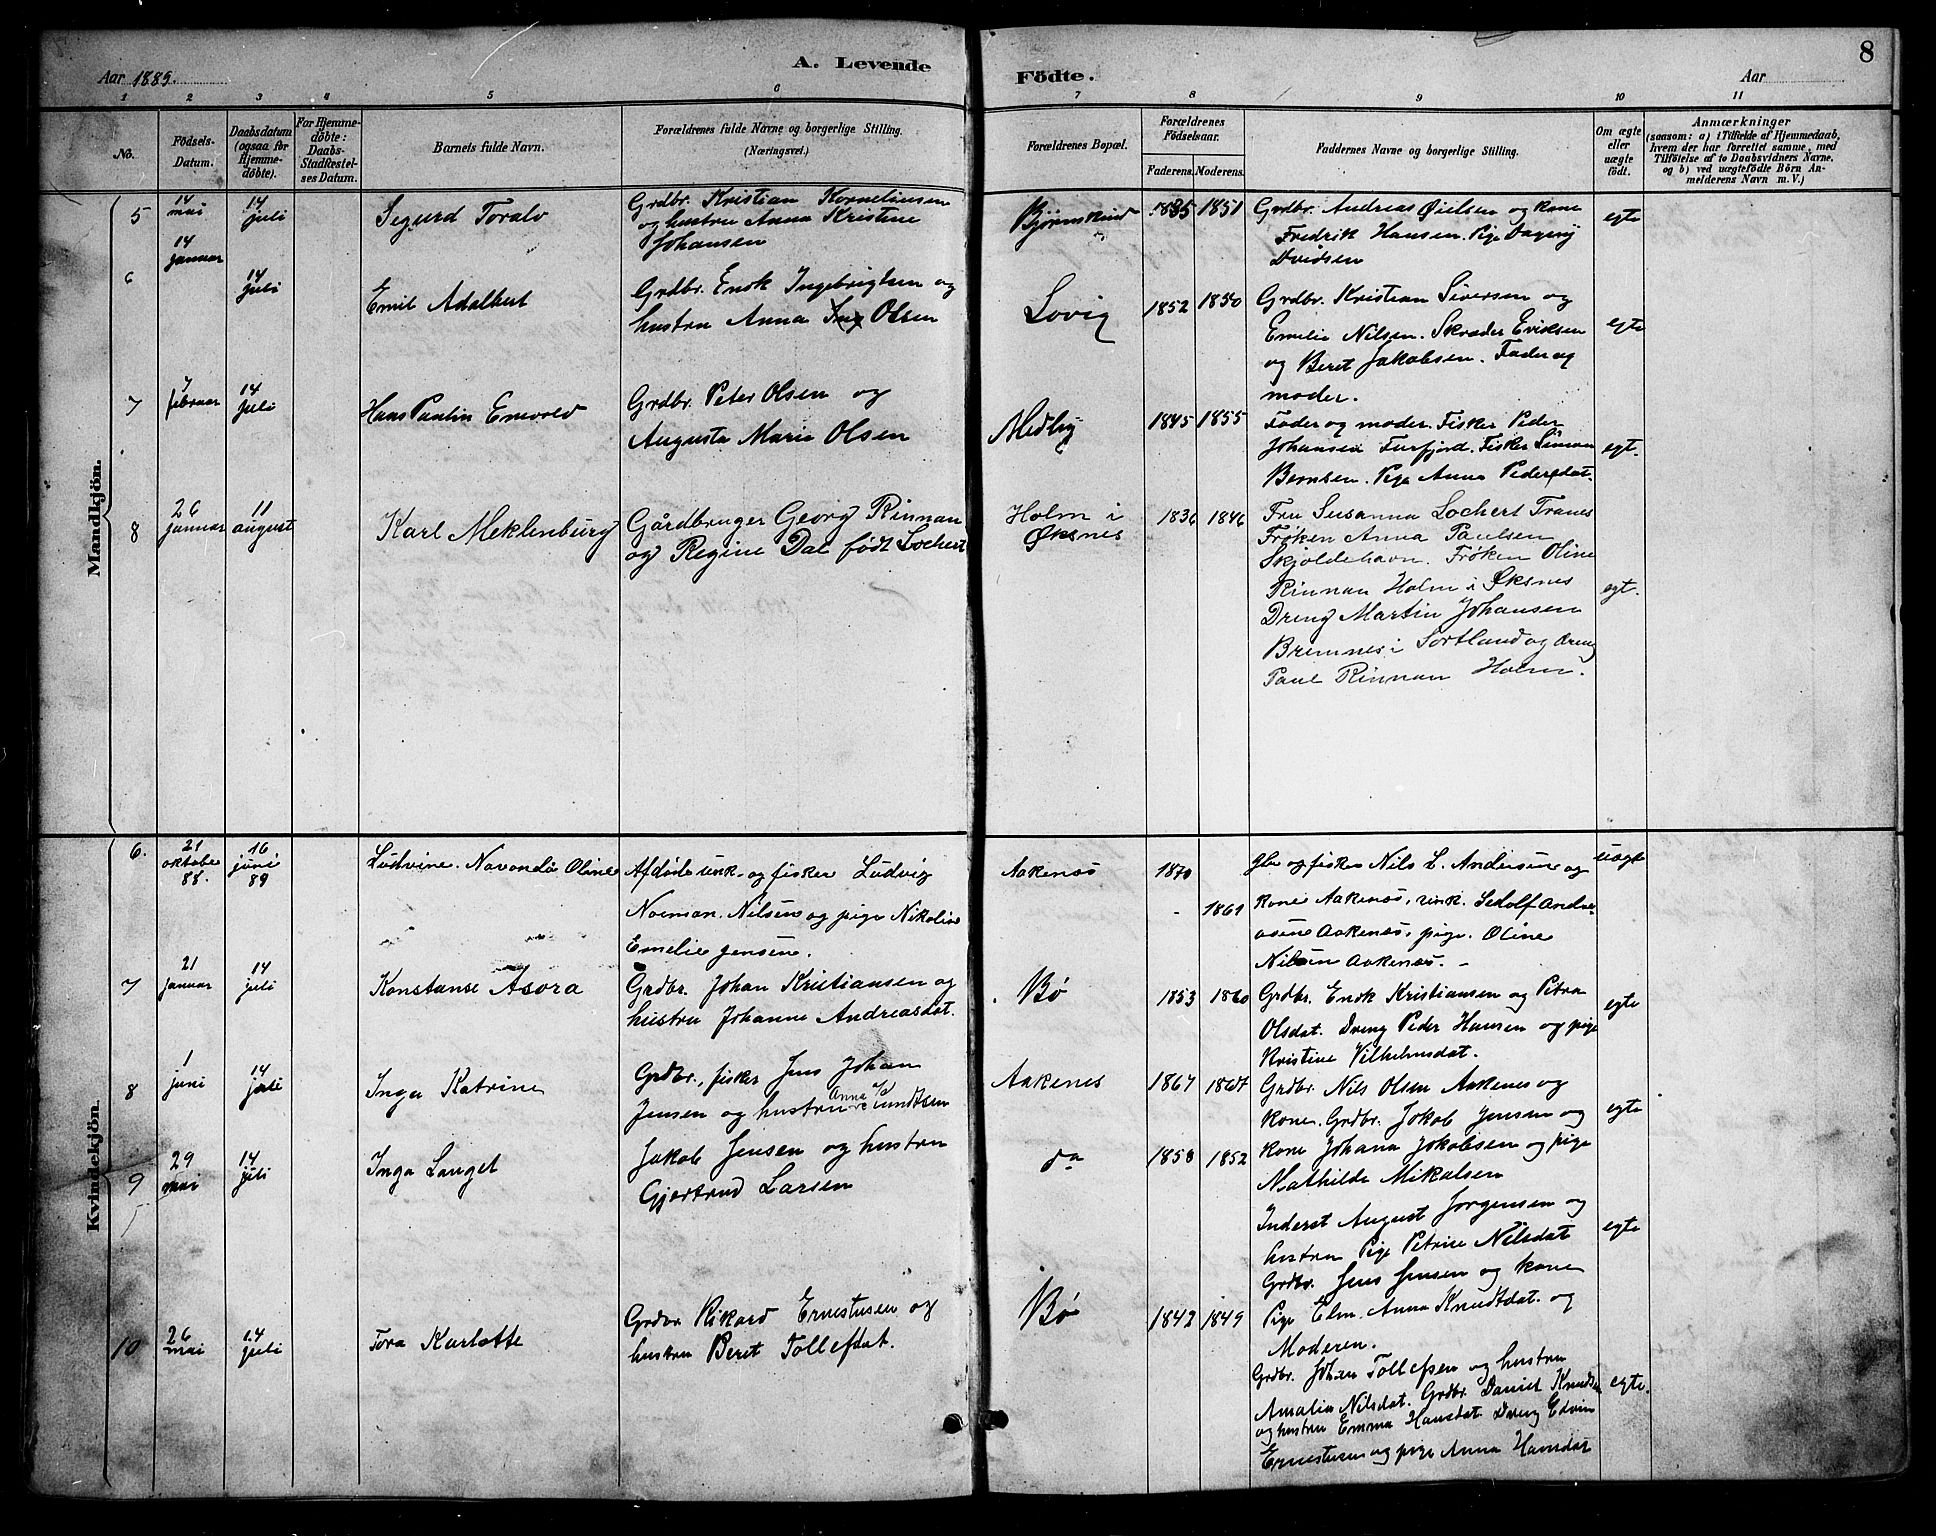 Aar 1889.
A. Levende
Födte.
Aar
8
1 2 3 4 5 6 7 8 9 10 11
No.
Födsels-Datum.
Daabsdatum (ogsaa for Hjemmedøbte).
For Hjemmedøbte: Daabs-Stadfæstelses Datum.
Barnets fulde Navn.
Forældrenes fulde Navne og borgerlige Stilling.
(Næringsvei.)
Forældrenes Bopæl.
Forældrenes Fødselsaar.
Faderens. Moderens.
Faddernes Navne og borgerlige Stilling.
Om ægte eller uægte födt.
Anmærkninger
(saasom: a) i Tilfælde af Hjemmedaab,
hvem der har forrettet samme, med
Tilföielse af to Daabsvidners Navne,
og b) ved uægtefödte Börn An-
melderens Navn m. V.)
Mandkjön.
5
14 mai
14 juli
Sigurd Toralv
Grdbr. Kristian Korneliussen
og hustru Anna Kristine
Johansen
Bjørnskind
1835 1851
Grdbr. Andreas Øielsen og kone
Fredrik Hansen. Pige Dagny
egte
6
14 januar
14 juli
Emil Adalbert
Grdbr. Enok Ingebrigtsen og
hustru Anna Olsen
Lovig
1852 1850
Grdbr. Kristian Siversen og
Emelie Nilsen. Skræder Eriksen
og Beret Jakobsen. Fader og
moder.
egte
7
7 februar
14 juli
Hans Paulin Emvold
Grdbr. Peter Olsen og
Augusta Marie Olsen
Medby
1845 1855
Fader og moder. Fisker Peder
Johansen Furfjord. Fisker Simon
Berntsen. Pige Anna Pedersdat.
egt.
8
26 januar
11 august
Karl Meklenburg
Gårdbruger Georg Rinnan
og Regine Dal født Lochert
Holm i
Øksnes
1836 1846
Fru Susanna Lochert Tranes
Frøken Anna Paulsen
Skjoldehavn. Frøken Oline
Rinnan Holm i Øksnes
Dreng Martin Johansen
Bremnes i Sortland og dreng
Paul Rinnan Holm.
egt.
Kvindekjön.
6.
21 oktober 88.
16 juni 89
Ludvine. Navanda Oline
Afdøde unk. og fisker Ludvig
Norman. Nilsen og pige Nikoline
Emelie Jensen.
Aakenes
1870
- 1861
Gbr og fisker Nils L. Andersen og
kone Aakenes, unk. Sedolf Andre-
asen Aakenes, pige. Oline
Nilsen Aakenes. -
uegt
7
21 januar
14 juli
Konstanse Asora
Grdbr. Johan Kristiansen og
hustru Johanne Andreasdat.
Bø
1853 1860
Grdbr. Enok Kristiansen og Petra
Olsdat. Dreng Peder Hansen og pige
Kristine Vilhelmsdat.
egte
8
1 juni
14 juli
Inga Katrine
Grdbr., fisker Jens Johan
Jensen og hustru Anna Kundtsen
Aakenes
1867 1867
Grdbr. Nils Olsen Aakenes og
kone. Grdbr. Jakob Jensen og
kone Johana Jakobsen og pige
Mathilde Mikalsen
egte
9
29 mai
14 juli
Inga Lauget
Jakob Jensen og hustru
Gjertrud Larsen
da
1858 1852
Inderst August Jørgensen og
hustru Pige Petrine Nilsdat
Grdbr. Jens Jensen og kone
Pige Elm. Anna Knudtdat. og
Moderen.
egte
10
26 mai
14 juli
Tora Karlotte
Grdbr Rikard Ernestusen og
hustru Beret Tollefdat.
Bø
1842 1849
Grdbr. Johan Tollefsen og hustru
Amalia Nilsdat. Grdbr. Daniel Knudsen
og hustru Emma Hansdat Dreng Edvin
Ernestusen og pige Anna Hansdat
egte.